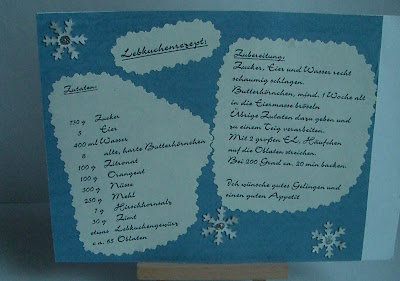 Lebkuchenrezept:
Zutaten:
750 g Zucker
5 Eier
400 ml Wasser
8 alte, harte Butterhörnchen
100 g Zitronat
100 g Orangeat
300 g Nüsse
250 g Mehl
7 g Hirschhornsalz
30 g Zimt
etwas Lebkuchengewürz
ca. 65 Oblaten
Zubereitung:
Zucker, Eier und Wasser recht
schaumig schlagen.
Butterhörnchen, mind. 1 Woche alt
in die Eiermasse bröseln
Übrige Zutaten dazu geben und
zu einem Teig verarbeiten.
Mit 2 großen EL, Häufchen
auf die Oblaten streichen.
Bei 200 Grad ca. 20 min backen.
Ich wünsche gutes Gelingen und
einen guten Appetit